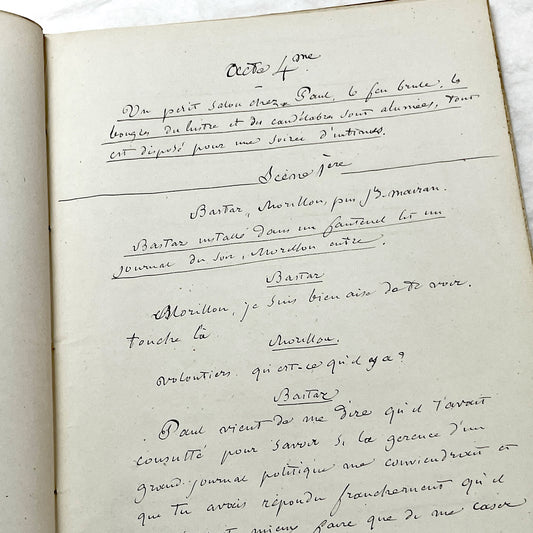 Acte 4me
Un petit salon chez Paul, le feu brule, les
bougies du lustre et des candélabres sont alumées, tout
est disposé pour une soirée d'intimes.
Scène 1ère
Bastar, Morillon, puis Jh-mairan.
Bastar installé dans un fauteuil lit un
journal du soir, Morillon entre.
Bastar
Morillon, je suis bien aise de te voir.
touche là
Morillon.
volontiers. qu'est-ce qu'il y a?
Bastar
Paul vient de me dire qu'il t'avait
consulté pour savoir si la gerence d'un
grand journal politique me conviendrait et
que tu avais répondu franchement qu'il
mieux faire que de me caser